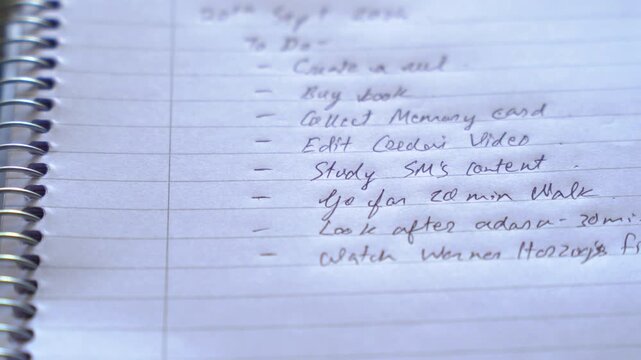 20th Sept 2022
To Do -
- Create a reel
- Buy book
- Collect Memory card
- Edit Credai Video
- Study SM's content.
- Go for 20 min Walk.
- Look after adara - 30 mi
- Watch Werner Herzog's fi